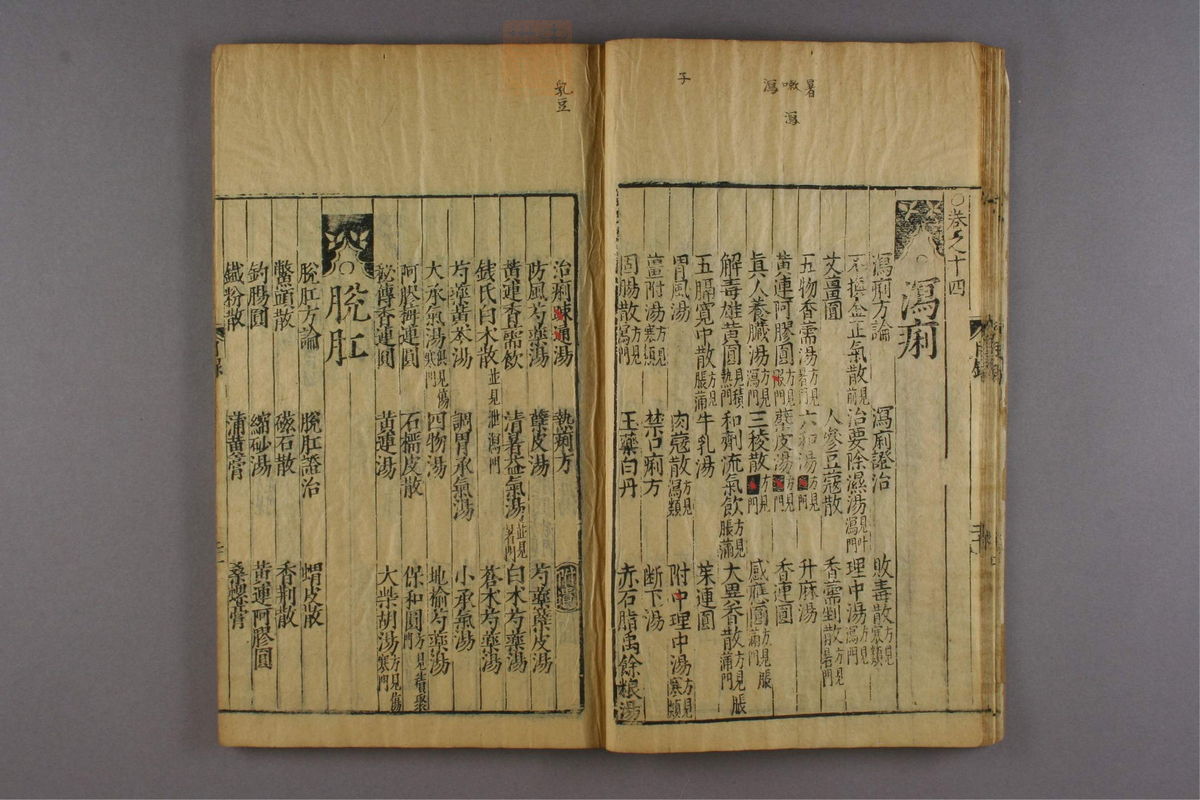 暑
嗽
瀉
瀉
子
○卷之十四
瀉痢
瀉痢方論 瀉痢證治 敗毒散方見寒類
不換金正氣散見前 治要除濕湯見叶瀉門 理中湯方見瀉門
艾薑圓 人參豆蔻散 香薷剉散方見暑門
五物香薷湯方見暑門 六和湯方見門 升麻湯
黃連阿膠圓方見門 蘗皮湯方見門 香連圓
真人養臟湯方見瀉門 三稜散方見門 感應圓方見脹滿門
解毒雄黃圓見積熱門 和劑流氣飲方見脹滿 大異香散方見脹滿門
五膈寬中散方見脹滿 牛乳湯 茱連圓
胃風湯 肉蔻散方見瀉類 附中理中湯方見寒類
薑附湯方見寒類 禁口痢方 斷下湯
固腸散方見瀉門 玉藥白丹 赤石脂禹餘粮湯
乳豆
治痢通湯 熱痢方
防風芍藥湯 蘗皮湯 芍藥蘗皮湯
黃連香薷飲 清暑益氣湯並見暑門 白朮芍藥湯
錢氏白朮散並見泄瀉門 蒼朮芍藥湯
芍藥黃芩湯 調胃承氣湯 小承氣湯
大承氣湯見傷寒門 四物湯 地榆芍藥湯
石榴皮散 保和圓方見積聚
秘傳香連圓 黃連湯 大柴胡湯方見傷寒門
脫肛
脫肛方論 脫肛證治 蝟皮散
鱉頭散 磁石散 香荊散
釣腸圓 縮砂湯 黃連阿膠圓
鐵粉散 蒲黃膏 桑螺膏